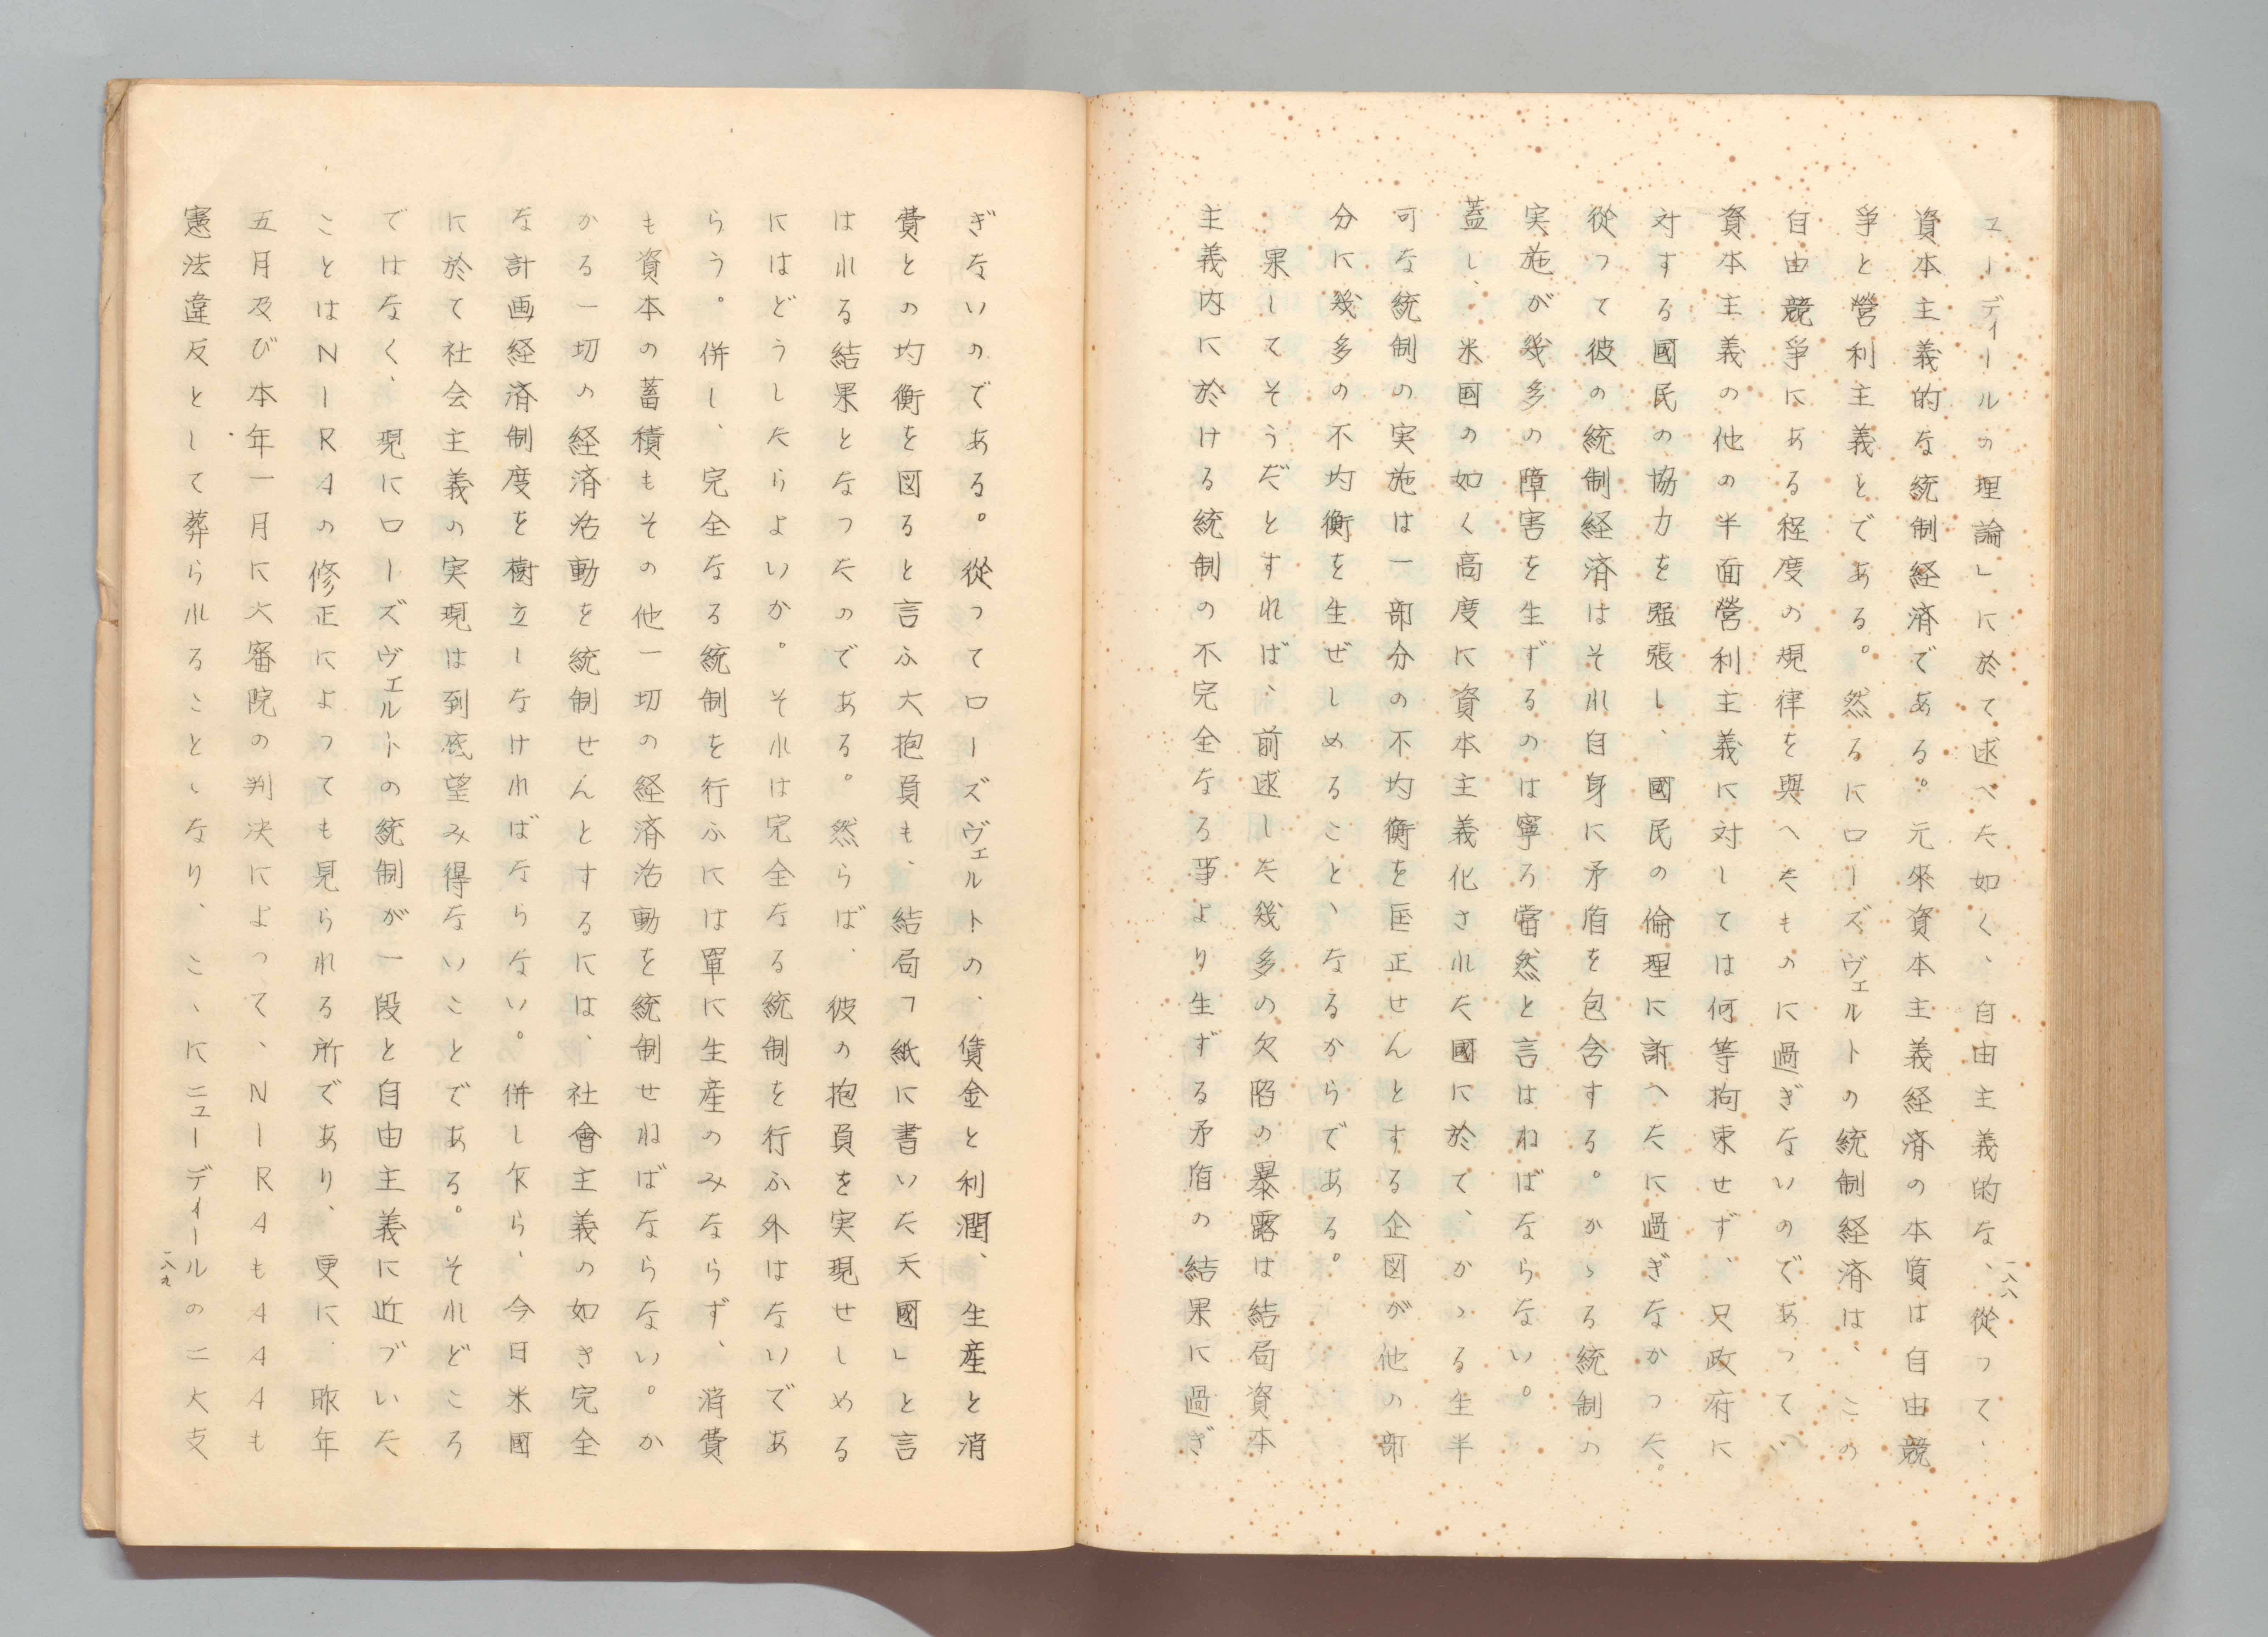 ューディールの理論」に於て述へた如く、自由主義的な、從つて、
資本主義的な統制経済である。元來資本主義経済の本質は自由競
爭と營利主義とである。然るにローズヴェルトの統制経済は、この
自由競爭にある程度の規律を與へたものに過ぎないのであつてい
資本主義の他の半面營利主義に対しては何等拘束せず、只政府に
対する國民の協力を强張し、國民の倫理に訴へたに過ぎなかつた。
從つて彼の統制経済はそれ自身に矛盾を包含する。かゝる統制の
実施が幾多の障害を生ずるのは寧ろ當然と言はねばならない。
蓋し、米国の如く高度に資本主義化された國に於て、かゝる生半
可な統制の実施は一部分の不均衡を匡正せんとする企図が他の部
分に幾多の不均衡を生ぜしめることゝなるからである。
果してそうだとすれば、前述した幾多の欠陷の暴露は結局資本
主義内に於ける統制の不完全なる事より生ずる矛盾の結果に過ぎ
一八八
ぎないのである。從つてローズヴェルトの、賃金と利潤、生産と消
費との均衡を図ると言ふ大抱負も、結局「紙に書いた天國」と言
はれる結果となつたのである。然らば、彼の抱負を実現せしめる
にはどうしたらよいか。それは完全なる統制を行ふ外はないであ
らう。併し、完全なる統制を行ふには單に生産のみならず、消費
も資本の蓄積もその他一切の経済活動を統制せねばならない。か
かる一切の経済活動を統制せんとするには、社會主義の如き完全
な計画経済制度を樹立しなければならない。併し乍ら、今日米國
に於て社会主義の実現は到底望み得ないことである。それどころ
ではなく、現にローズヴェルトの統制が一段と自由主義に近づいた
ことはNIRAの修正によつても見られる所であり、更に、昨年
五月及び本年一月に大審院の判決によつて、NIRAもAAAも
憲法違反として葬られることゝなり、こゝにニューディールの二大支
一八九